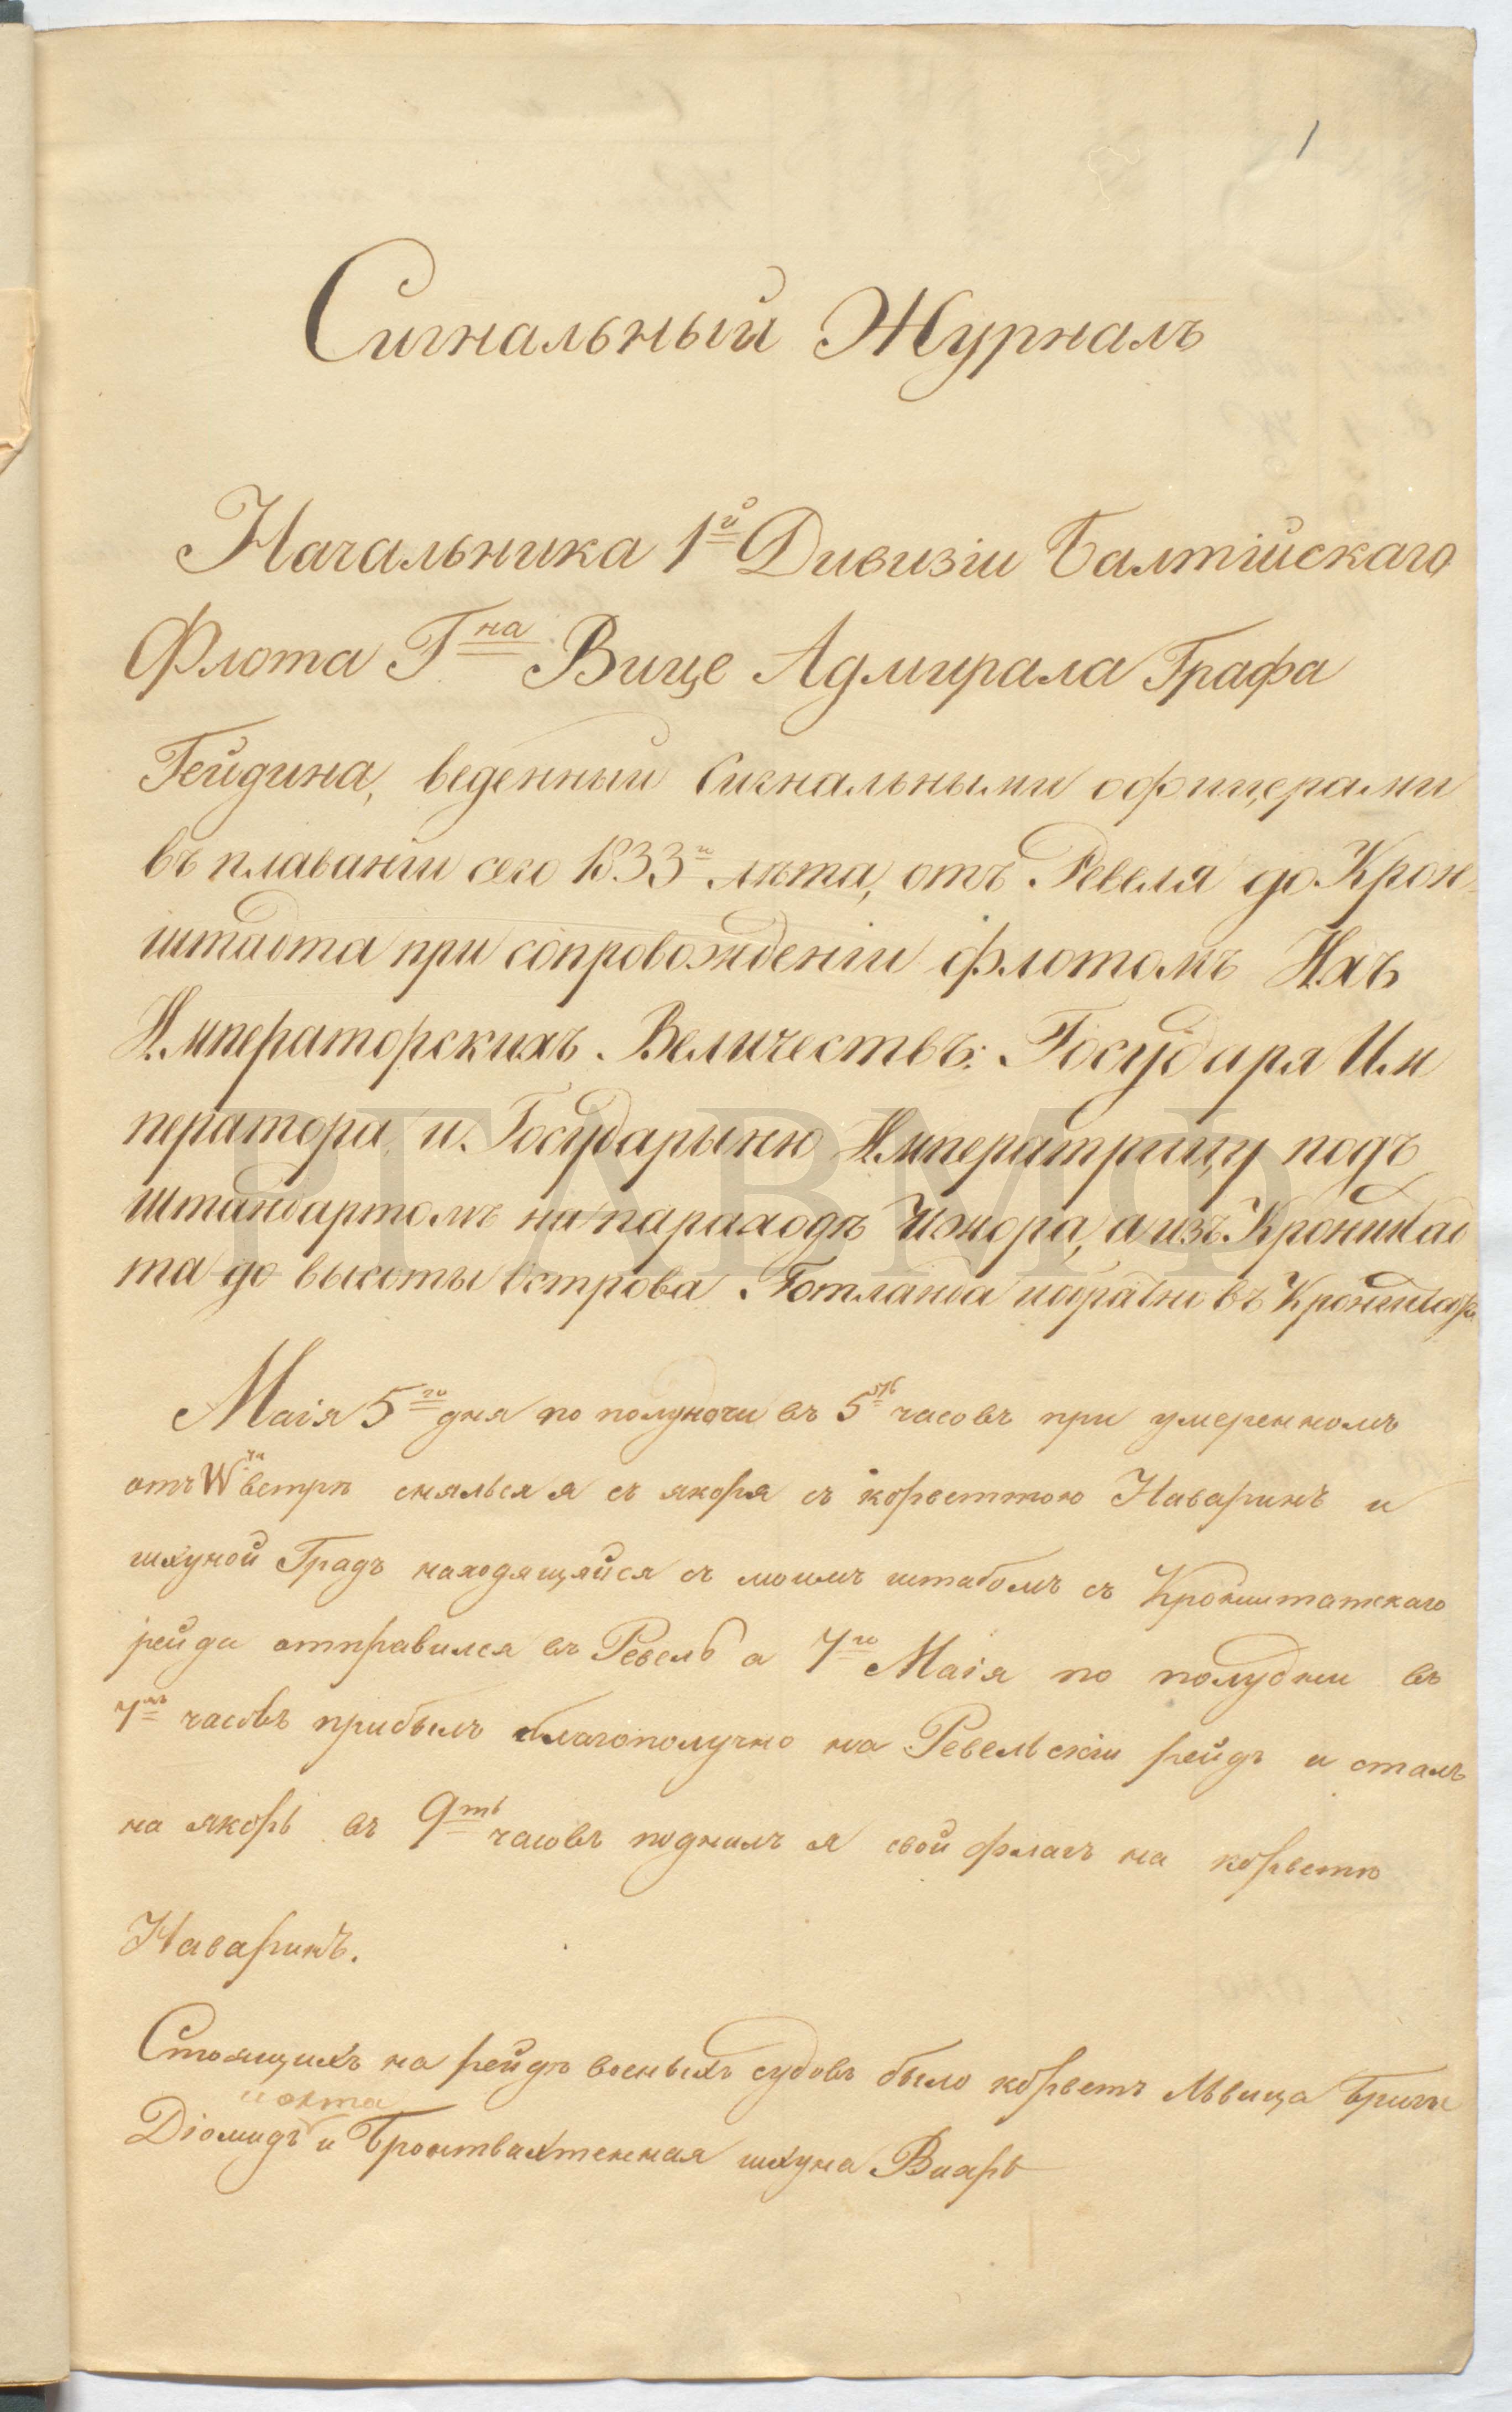 1
Сигнальный Журналъ
Начальника 1й Дивизіи Балтійскаго
Флота Гна Вице Адмирала Графа
Гейдина, веденный Сигнальными офицерами
въ плаваніи сего 1833и лѣта, отъ Ревеля до Крон-
штадта при сопровожденіи флотомъ Ихъ
Императорскихъ Величествъ: Государя Им
ператора и Государыню Императрицу подъ
штандартомъ на параходѣ Ижора, а изъ Кронштад
та до высоты Острова Готланда и обратно въ Кронштадт
Маія 5го дня по полуночи въ 5ть часовъ при умеренномъ
отъ W вѣтрѣ снялься я съ якоря съ корветтою Наваринъ и
шхуной Градъ находящяйся съ моимъ штабомъ съ Кронштатскаго
рейда отправился въ Ревель а 7го Маія по полудни въ
7мь часовъ прибылъ благополучно на Ревельскіи рейдъ и сталъ
на якорь въ 9ть часовъ поднилъ я свой флагъ на корветѣ
Наваринъ.
Стоящихъ на рейдѣ военыхъ судовъ было корветъ Львица Бриги
и яхта
Діомидъ и Бронтвахтенная шхуна Вихрь
РГАВМФ